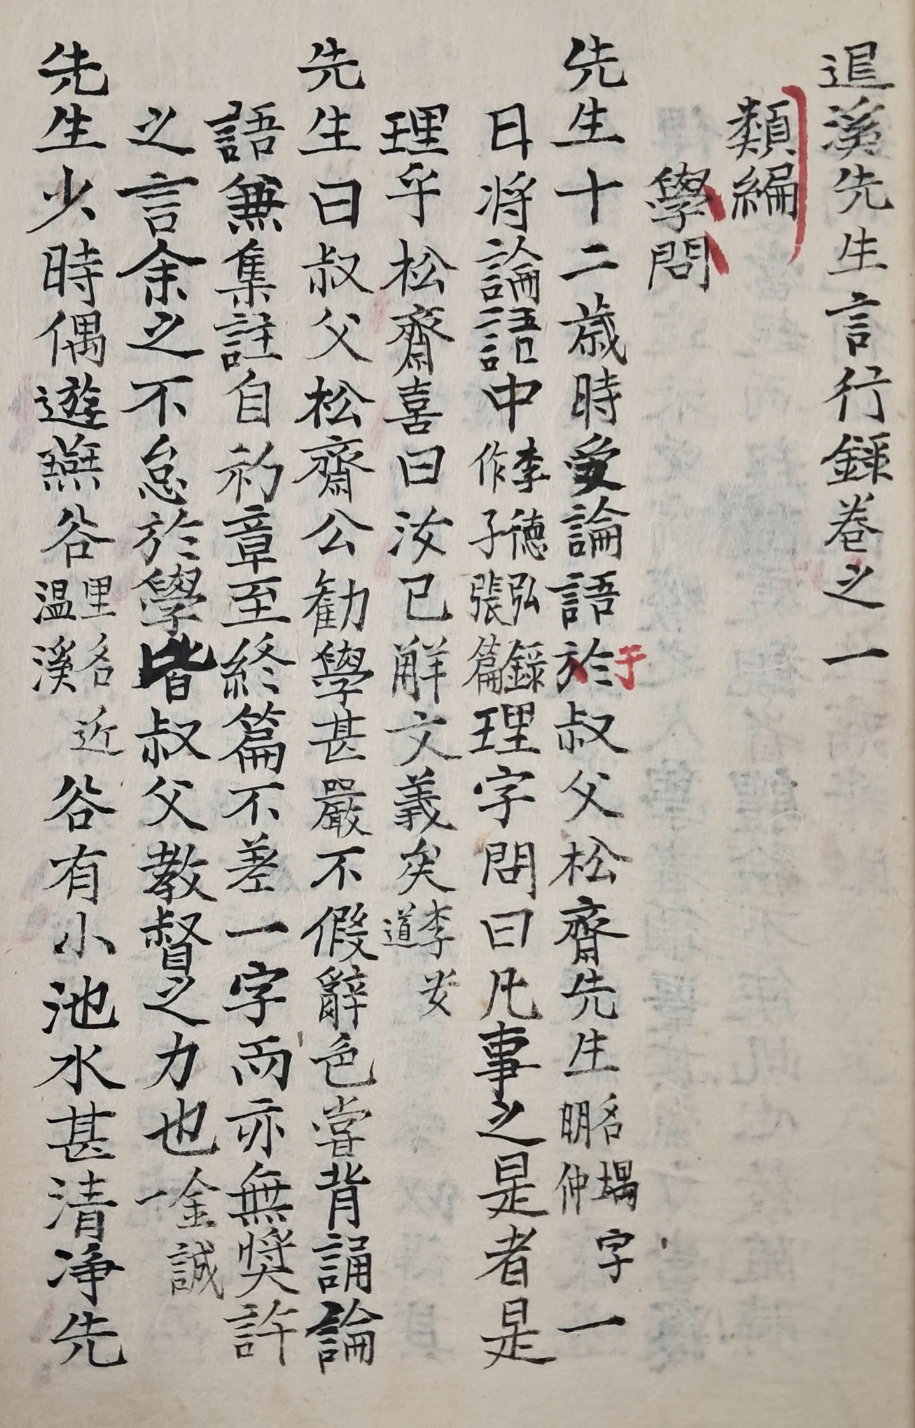 退溪先生言行錄卷之一
類編
學問
先生十二歲時受論語於于叔父松齋先生名堣字明仲一
日將論語中李德弘錄作子張篇理字問曰凡事之是者是
理乎松齋喜曰汝已解文義矣李安道
先生曰叔父松齋公勸學甚嚴不假辭色嘗背誦論
語兼集註自初章至終篇不差一字而亦無奬許
之言余之不怠於學皆叔父教督之力也金誠一
先生少時偶遊燕谷里名近溫溪谷有小池水甚清淨先